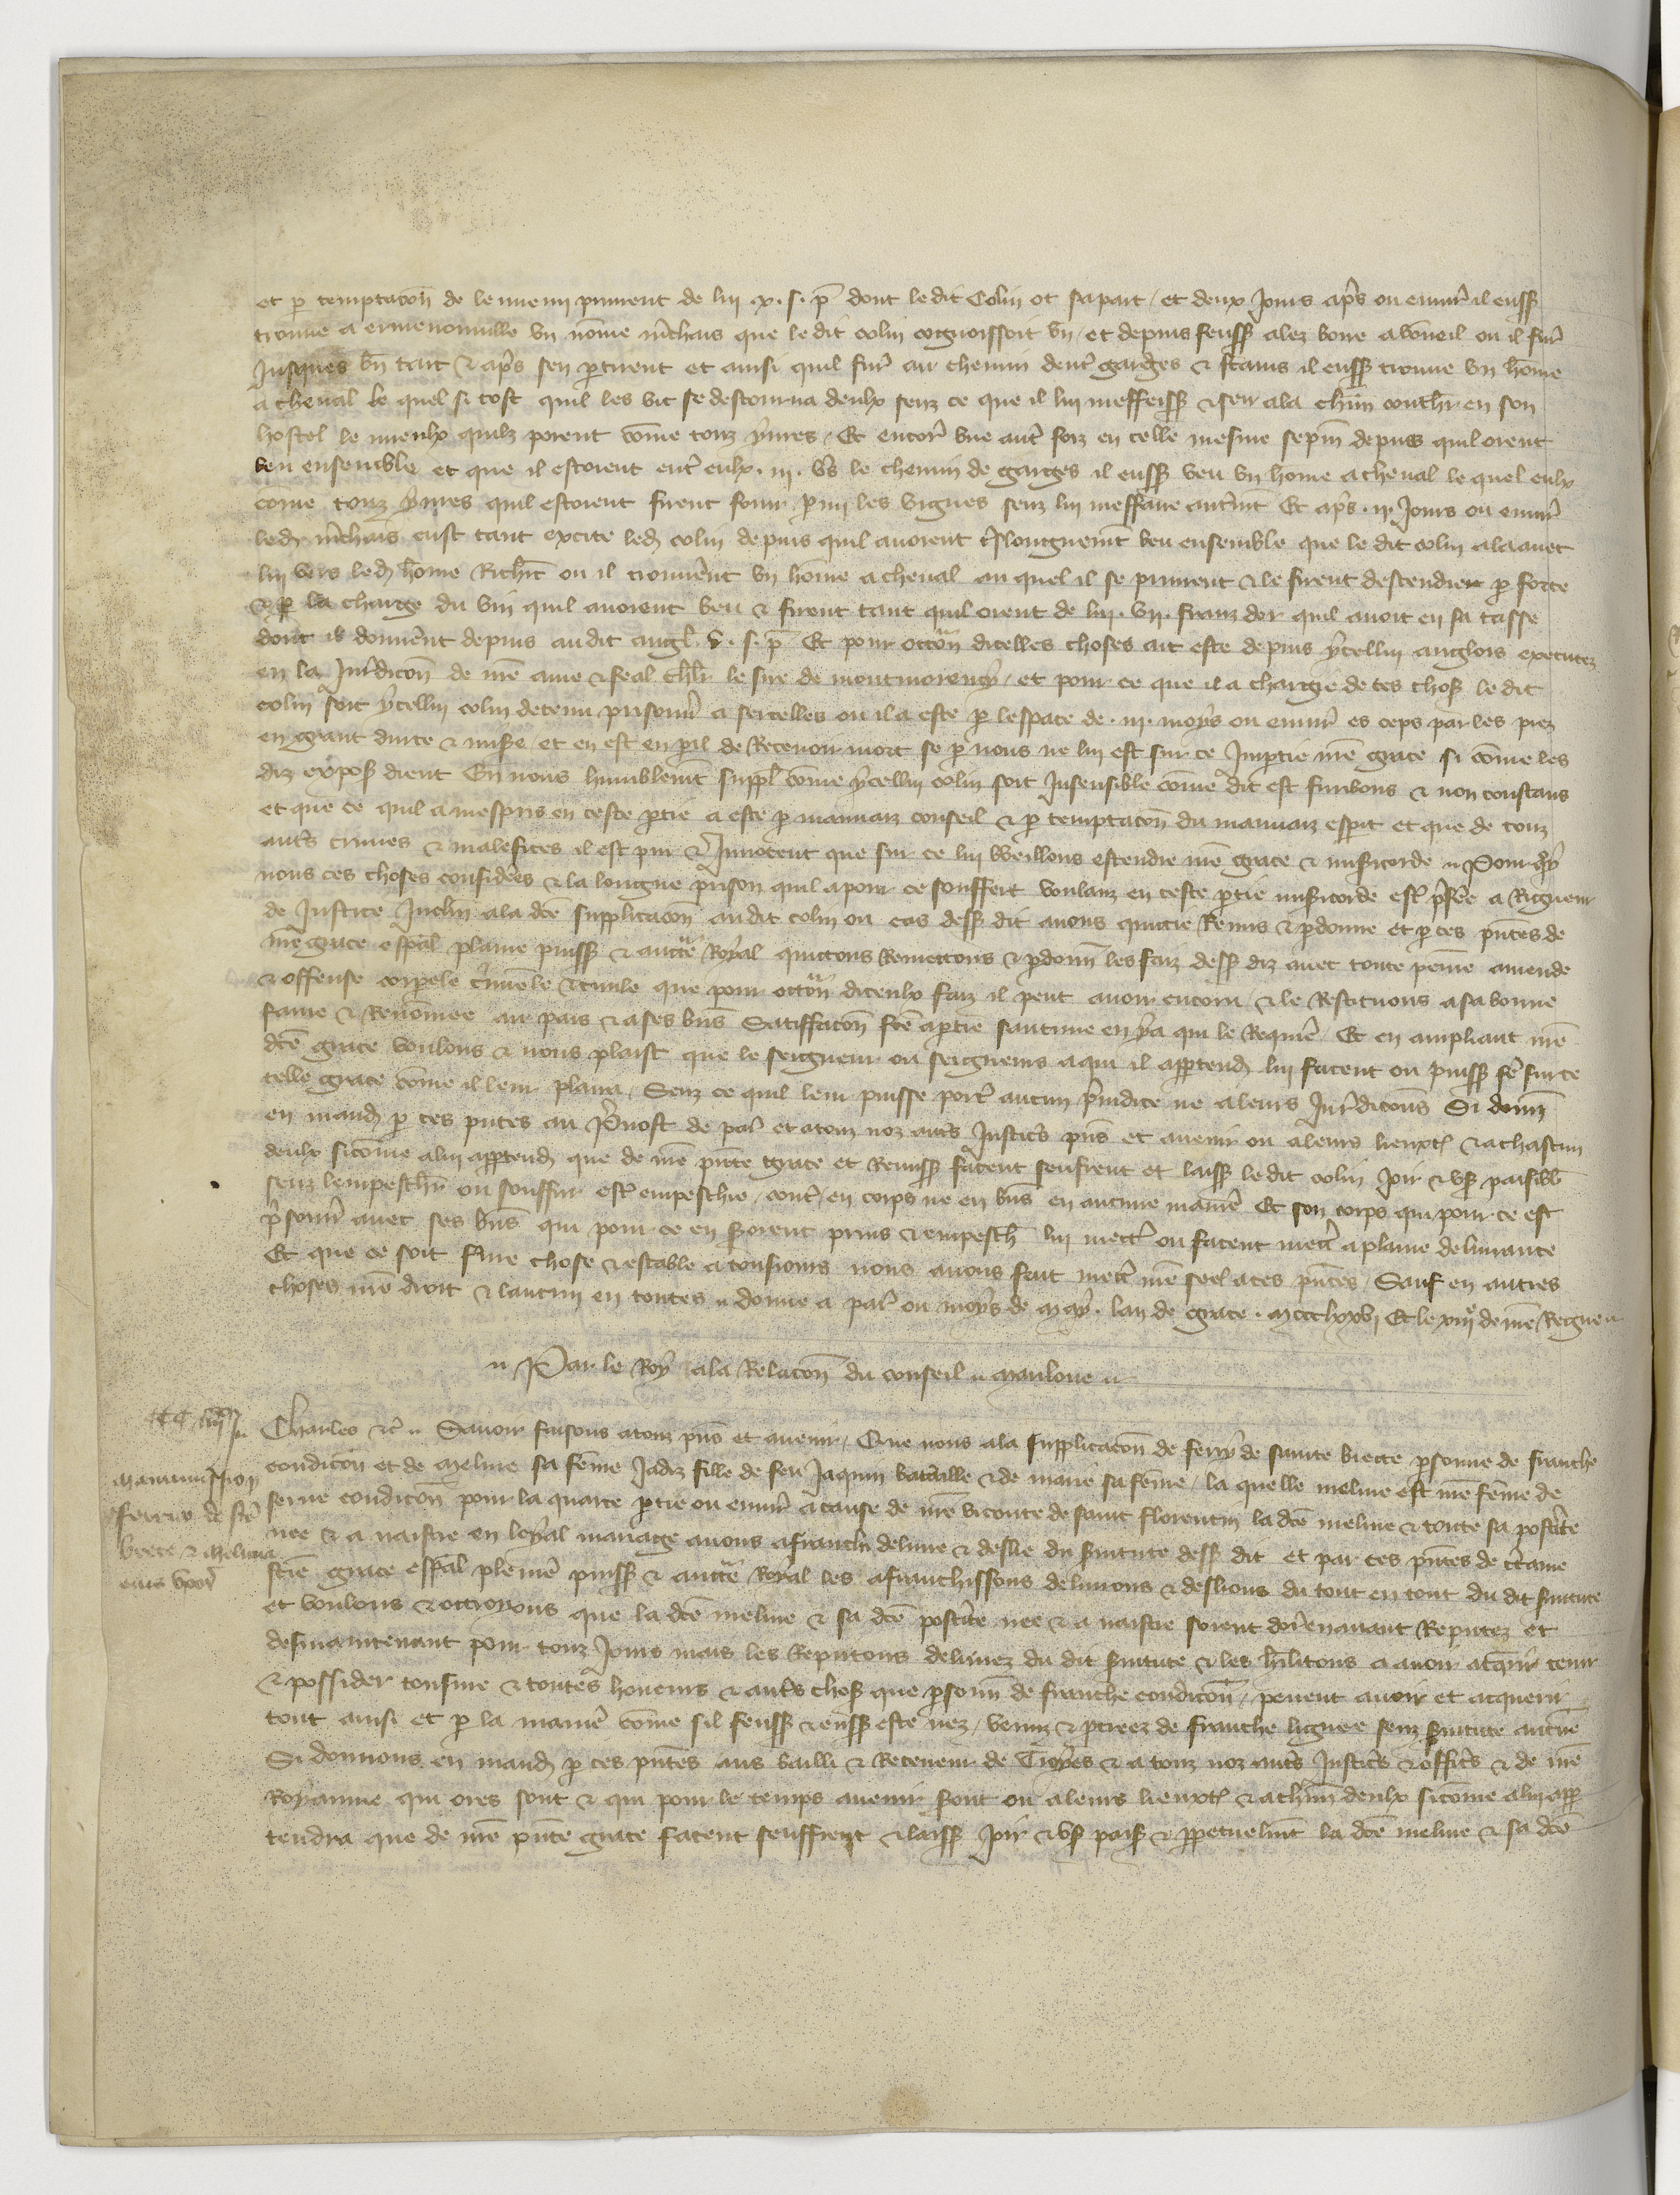 et p temptacōn de lennemi prinrent de lui .x. s. p̄ dont ledit Colin ot sa part / et deux Jours apr̄s ou enuir̄ il eussēt
trouue a ermenonuille vn nōme m̄chais que le dit colin cognoissoit vn / et depuis feussēt alez boire a boneil ou il fur̄
Jusques bn̄ tart & apr̄s sen ptirent et ainsi quil fur̄ au chemin dentr̄ garges & stains il eussēt trouue vn hōme
a cheual le quel si tost quil les vit se destourna deulx senz ce que il lui meffeissēt & sen ala chūn couchr̄ en son
hostel le mieulx quilz porent cōme touz yures / Et encor̄ vne autr̄ foiz en celle mesme sepm̄ depuis quil orent
beu ensemble et que il estoient entr̄ eulx .iij. v̄s le chemin de garges il eussēt veu vn home a cheual le quel eulx
come touz yures quil estoient firent fouir pmi les vignes senz lui meffaire autr̄mt Et apr̄s .ij. Jours ou enuir̄
led̄ m̄chais eust tant excite led̄ colin depuis quil auoient beu ensemble que le dit colin ala auec
lui vers led̄ hōme Rich̄t ou il trouuer̄nt vn hōme a cheual au quel il se prinrent & le firent descendre p force
& p la charge du vin quil auoient beu & firent tant quil orent de lui .vij. frans dor quil auoit en sa tasse
dont il donner̄nt depuis audit angl̄ .v. s. p̄ Et pour occōn dicelles choses ait este depuis ycellui anglois executez
en la Jur̄dicōn de nr̄e ame & feal chl̄r le sire de montmorency / et pour ce que il a charge de ces chosēs le dit
colin soit ycellui colin detenu prisonnr̄ a sercelles ou il a este p lespace de .iij. moys ou enuir̄ es ceps par les piez
en grant durte & misēe / et en est en pil de Receuoir mort se p nous ne lui est sur ce Impartie nr̄e grace si cōme les
diz exposēs dient En nous humblemt̄ suppl̄ cōme ycellui colin soit Insensible cōme dit est furibons & non constans
et que ce quil a mespris en ceste ptie a este p mauuaiz conseil & p temptacōn du mauuaiz esperit et que de touz
autr̄s crimes & malefices il est pur & Innocent que sur ce lui veillons estendre nr̄e grace & misericorde // Pour quoy
nous ces choses considerees & la longue prison quil a pour ce souffert voulanz en ceste ptie misericorde estr̄ prēferee a Rigueur
de Justice Inclin̄ a la dc̄e supplicacōn audit colin ou cas dessēs dit auons quictie Remis & pdonne et p ces pn̄tes de
nr̄e grace esp̄al plaine puissēe & auctte Royal quictons Remettons & pdonn̄ les faiz dessēs diz auec toute peine amende
& offense corporele crimin̄ele & ciuile que pour occōn diceulx faiz il peut auoir encoru / & le Restituons a sa bonne
fame & Renōmee au pais & a ses bn̄s Satiffacōn fc̄e a ptie sautune en y a qui le Requier̄ / Et en ampliant nr̄e
dc̄e grace voulons & nous plaist que le seigneur ou seigneurs a qui il apptend̄ lui facent ou puissēt fr̄e sur ce
telle grace cōme il leur plaira / Senz ce quil leur puisse portr̄ aucun p̄iudice ne a leurs Jur̄dicōns Si donnēs
en mand̄ p ces pn̄tes au p̄uost de par̄ et a touz noz autr̄s Justicr̄s pn̄s et auenir ou a leurs lieuxtn̄ & a chascun
deulx sicōme a lui apptend̄ que de nr̄e pn̄te grace et Remissēon facent seuffrent et laissēt ledit colin Joir & vsēr paisibl̄
senz lempeschr̄ ou souffrir estr̄ empeschie / contr̄ en corps ne en bn̄s en aucune manier̄ Et son corps qui pour ce est
p̄sonnr̄ auec ses bn̄s qui pour ce en seroient prins & empeschēs lui mettr̄ ou facent mettr̄ a plaine deliurance
Et que ce soit ferme chose & estable a tousiours nous auons fait mettr̄ nr̄e seel a ces pn̄tes / Sauf en autres
choses nr̄e droit & lautrui en toutes // donne a par̄ ou moys de may . lan de grace . mccclxxvj Et le xiije de nr̄e Regne //
// Par le Roy a la Relacōn du conseil // Mauloue //
Charles &c̄ // Sauoir faisons a touz pn̄s et auenir / Que nous a la supplicacōn de ferry de sainte biecte psonne de franche
condicōn et de meline sa fēme Jadiz fille de feu Jaquin bataille & de marie sa fēme / la quelle meline est nr̄e fēme de
serue condicōn pour la quarte ptie ou enuir̄ a cause de nr̄e viconte de saint florentin la dc̄e meline & toute sa postēte
nee & a naistre en loyal mariage auons afranchi deliure & deslie du seruitute dessēs dit et par ces pn̄tes de c̄taine
scīe grace esp̄al pleinēe puissēe & auctte Royal les afranchissons deliurons & deslions du tout en tout du dit seruitute
et voulons & ottroyons que la dc̄e meline & sa dc̄e posterite nee & a naistre soient dorēnauant Reputez et
desmaintenant pour touz Jours mais les Reputons deliurez du dit seruitute & les habilitons a auoir acquerir tenir
& possider tonsure & toutes honeurs & autr̄s chosēs que psonn̄ de franche condicōn / peuent auoir et acquerir
tout ainsi et p la manier̄ cōme sil feussēt & eussēt este nez / venuz & pcreez de franche lignee senz seruitute aucune
Si donnons en mand̄ p ces pn̄tes aus bailli & Receueur de Troyes & a touz noz autr̄s Justicr̄s & officr̄s & de nr̄e
Royaume qui ores sont & qui pour le temps auenir seront ou a leurs lieuxtn̄ & a chūn deulx sicōme a lui app
tendra que de nr̄e pn̄te grace facent seuffrent & laissēt Joir & vsēr paisēble & ppetuelmt̄ la dc̄e meline & sa dc̄e
Manumission
ferrici de sc̄e
biecte & meline
eius vxor̄